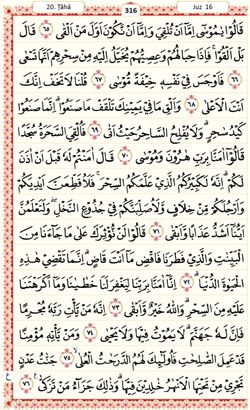 20. Ṭāhā 316 Juz 16
قَالُوْا يٰمُوْسٰٓى اِمَّآ اَنْ تُلْقِيَ وَاِمَّآ اَنْ نَّكُوْنَ اَوَّلَ مَنْ اَلْقٰى ٦٥ قَالَ
بَلْ اَلْقُوْاۚ فَاِذَا حِبَالُهُمْ وَعِصِيُّهُمْ يُخَيَّلُ اِلَيْهِ مِنْ سِحْرِهِمْ اَنَّهَا تَسْعٰى
٦٦ فَاَوْجَسَ فِيْ نَفْسِهٖ خِيْفَةً مُّوْسٰى ٦٧ قُلْنَا لَا تَخَفْ اِنَّكَ
اَنْتَ الْاَعْلٰى ٦٨ وَاَلْقِ مَا فِيْ يَمِيْنِكَ تَلْقَفْ مَا صَنَعُوْاۗ اِنَّمَا صَنَعُوْا
كَيْدُ سٰحِرٍۗ وَلَا يُفْلِحُ السَّاحِرُ حَيْثُ اَتٰى ٦٩ فَاُلْقِيَ السَّحَرَةُ سُجَّدًا
قَالُوْٓا اٰمَنَّا بِرَبِّ هٰرُوْنَ وَمُوْسٰى ٧٠ قَالَ اٰمَنْتُمْ لَهٗ قَبْلَ اَنْ اٰذَنَ
لَكُمْۗ اِنَّهٗ لَكَبِيْرُكُمُ الَّذِيْ عَلَّمَكُمُ السِّحْرَۚ فَلَاُقَطِّعَنَّ اَيْدِيَكُمْ
وَاَرْجُلَكُمْ مِّنْ خِلَافٍ وَّلَاُصَلِّبَنَّكُمْ فِيْ جُذُوْعِ النَّخْلِۖ وَلَتَعْلَمُنَّ
اَيُّنَآ اَشَدُّ عَذَابًا وَّاَبْقٰى ٧١ قَالُوْا لَنْ نُّؤْثِرَكَ عَلٰى مَا جَاۤءَنَا مِنَ
الْبَيِّنٰتِ وَالَّذِيْ فَطَرَنَا فَاقْضِ مَآ اَنْتَ قَاضٍۗ اِنَّمَا تَقْضِيْ هٰذِهِ
الْحَيٰوةَ الدُّنْيَاۗ ٧٢ اِنَّآ اٰمَنَّا بِرَبِّنَا لِيَغْفِرَ لَنَا خَطٰيٰنَا وَمَآ اَكْرَهْتَنَا
عَلَيْهِ مِنَ السِّحْرِۗ وَاللّٰهُ خَيْرٌ وَّاَبْقٰى ٧٣ اِنَّهٗ مَنْ يَّأْتِ رَبَّهٗ مُجْرِمًا
فَاِنَّ لَهٗ جَهَنَّمَۗ لَا يَمُوْتُ فِيْهَا وَلَا يَحْيٰى ٧٤ وَمَنْ يَّأْتِهٖ مُؤْمِنًا
قَدْ عَمِلَ الصّٰلِحٰتِ فَاُولٰۤىِٕكَ لَهُمُ الدَّرَجٰتُ الْعُلٰى ٧٥ جَنّٰتُ عَدْنٍ
تَجْرِيْ مِنْ تَحْتِهَا الْاَنْهٰرُ خٰلِدِيْنَ فِيْهَاۗ وَذٰلِكَ جَزٰۤؤُا مَنْ تَزَكّٰى ٧٦